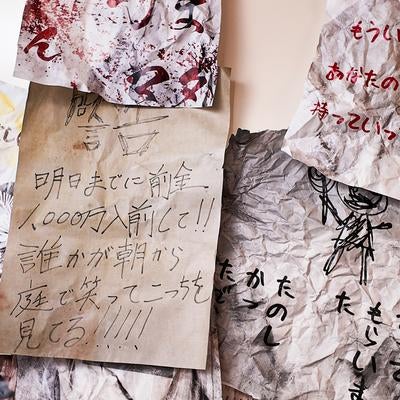 警告
明日までに前金
1,000万入前して!!
誰かが朝から
庭で笑ってこっちを
見てる!!!!!
もうい
あなたの
持っていっ
もらいま
た
たのし
かつ